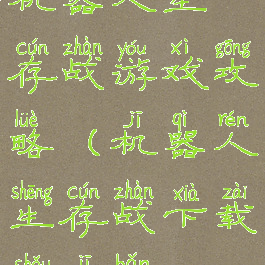 机器人生
cún zhàn yóu xì gōng
存战游戏攻
lüè jī qì rén
略(机器人
shēng cún zhàn xià zài
生存战下载
shǒu jī bǎn